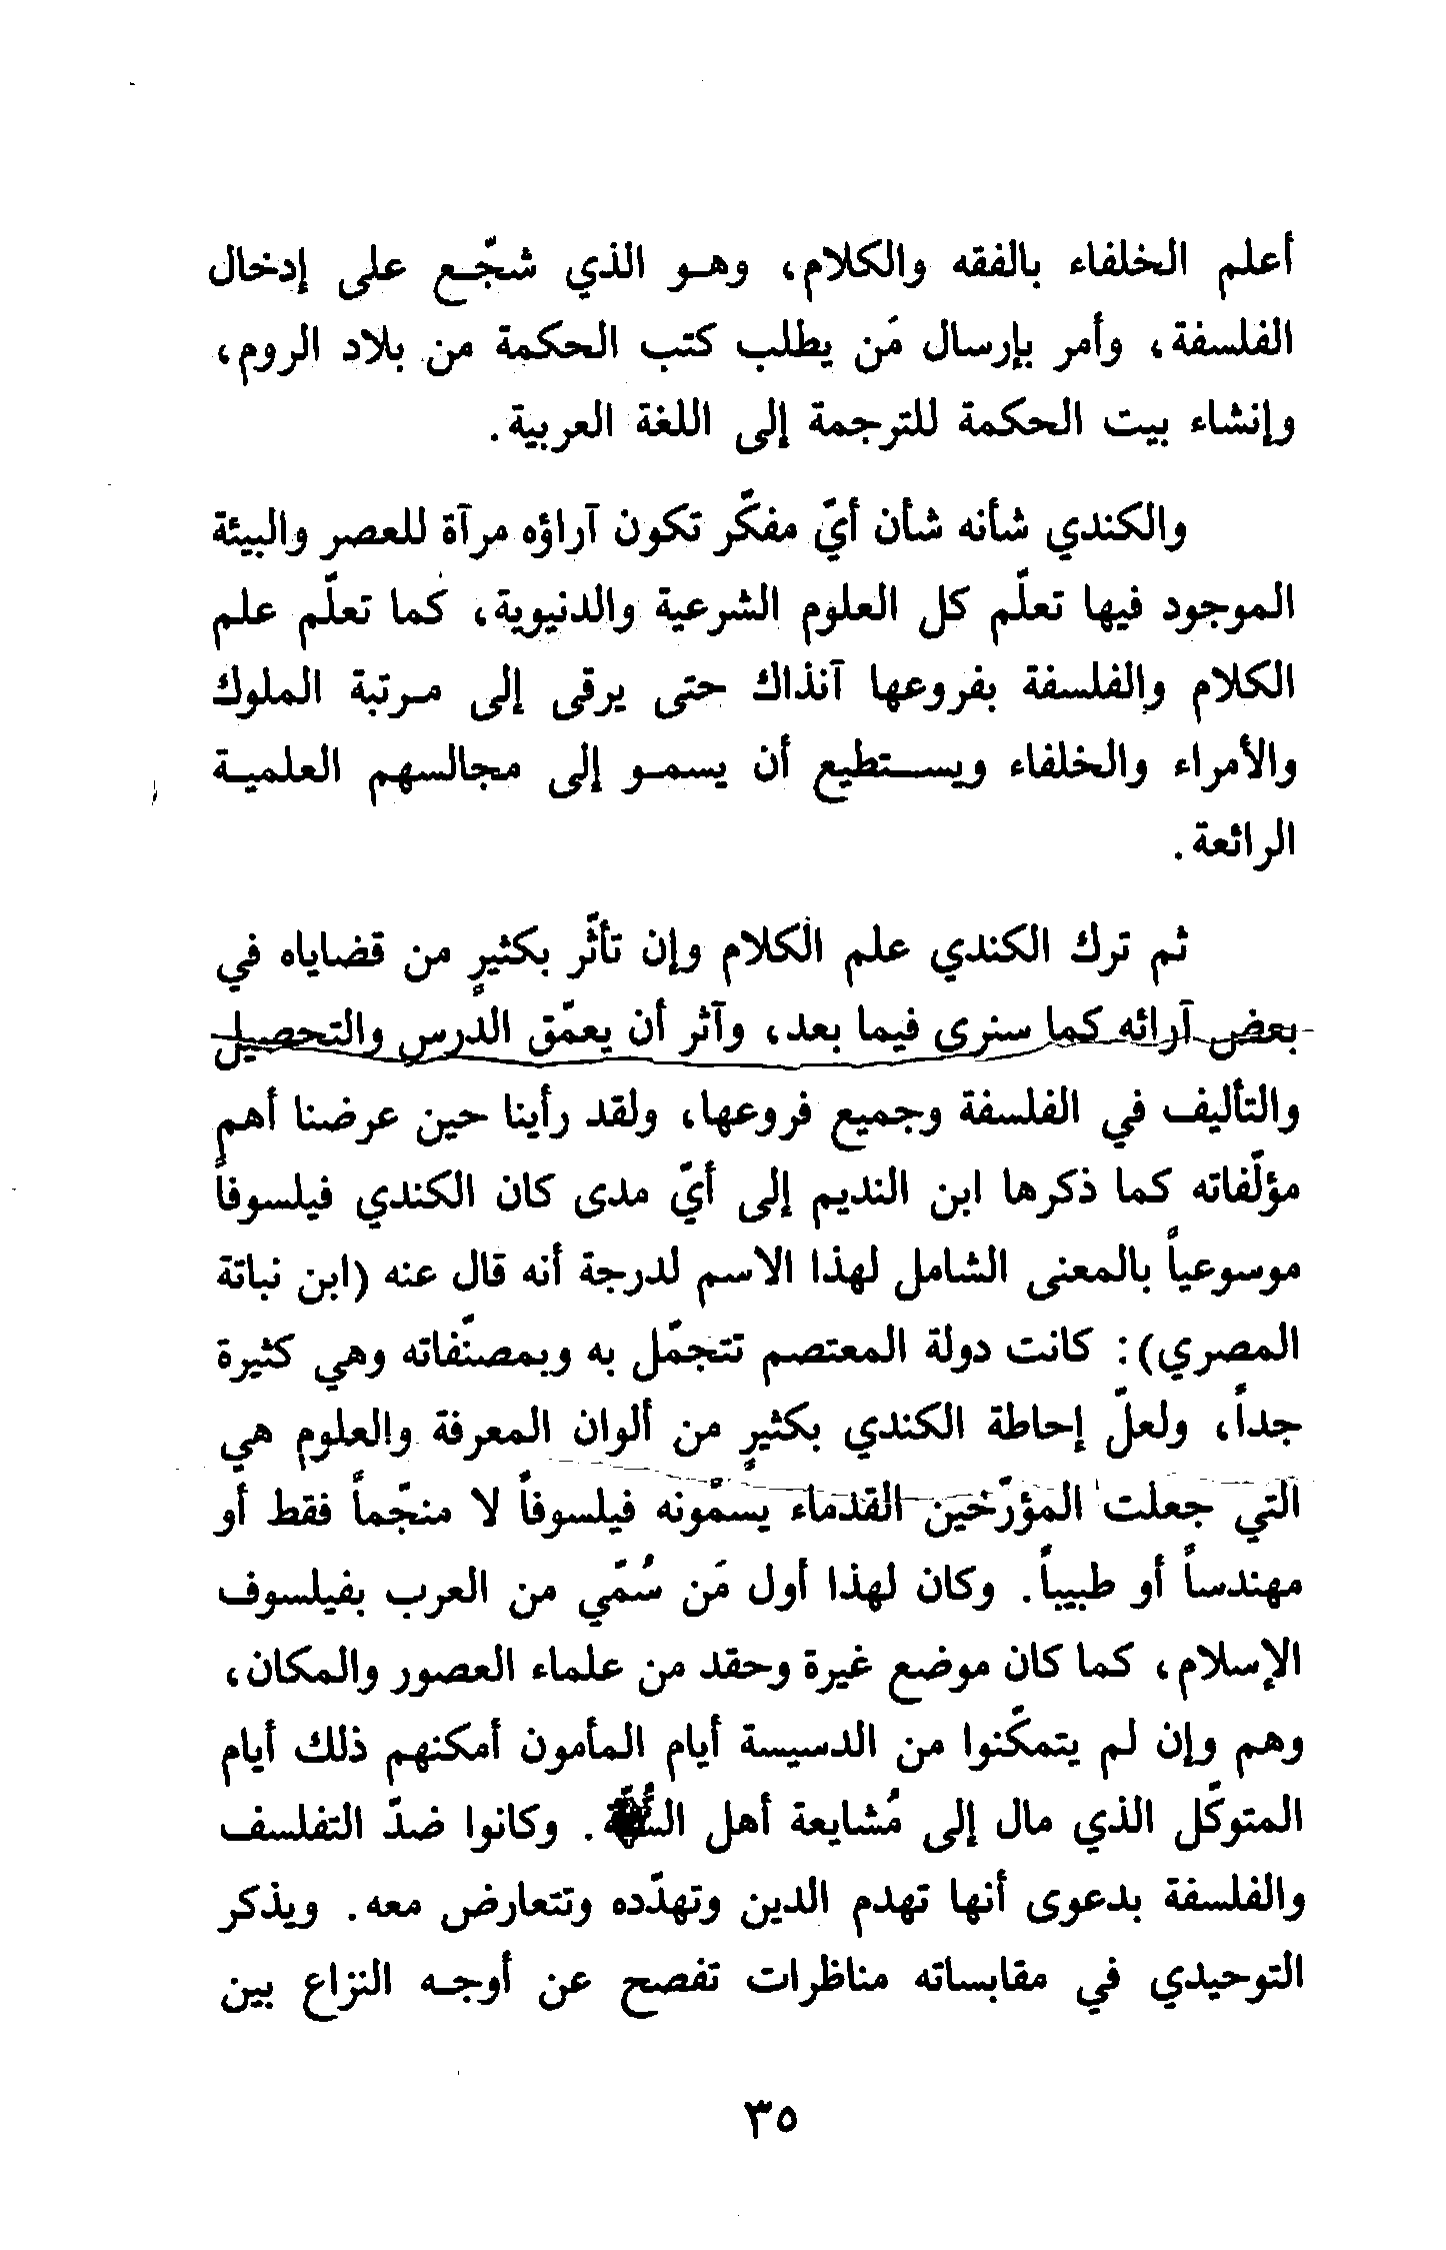 أعلم الخلفاء بالفقه والكلام، وهو الذي شجّع على إدخال
الفلسفة، وأمر بإرسال مَن يطلب كتب الحكمة من بلاد الروم،
وإنشاء بيت الحكمة للترجمة إلى اللغة العربية.
والكندي شأنه شأن أيّ مفكّر تكون آراؤه مرآة للعصر والبيئة
الموجود فيها تعلّم كل العلوم الشرعية والدنيوية، كما تعلّم علم
الكلام والفلسفة بفروعها آنذاك حتى يرقى إلى مرتبة الملوك
والأمراء والخلفاء ويستطيع أن يسمو إلى مجالسهم العلمية
الرائعة.
ثم ترك الكندي علم الكلام وإن تأثّر بكثيرٍ من قضاياه في
بعض آرائه كما سنرى فيما بعد، وآثر أن يعمّق الدرس والتحصيل
والتأليف في الفلسفة وجميع فروعها، ولقد رأينا حين عرضنا أهم
مؤلّفاته كما ذكرها ابن النديم إلى أيّ مدى كان الكندي فيلسوفاً
موسوعياً بالمعنى الشامل لهذا الاسم لدرجة أنه قال عنه (ابن نباتة
المصري): كانت دولة المعتصم تتجمّل به وبمصنّفاته وهي كثيرة
جداً، ولعلّ إحاطة الكندي بكثيرٍ من ألوان المعرفة والعلوم هي
التي جعلت المؤرّخين القدماء يسمّونه فيلسوفاً لا منجّماً فقط أو
مهندساً أو طبيباً. وكان لهذا أول مَن سُمّي من العرب بفيلسوف
الإسلام، كما كان موضع غيرة وحقد من علماء العصور والمكان،
وهم وإن لم يتمكّنوا من الدسيسة أيام المأمون أمكنهم ذلك أيام
المتوكّل الذي مال إلى مُشايعة أهل السُّنَّة. وكانوا ضدّ التفلسف
والفلسفة بدعوى أنها تهدم الدين وتهدّده وتتعارض معه. ويذكر
التوحيدي في مقابساته مناظرات تفصح عن أوجه النزاع بين
٣٥